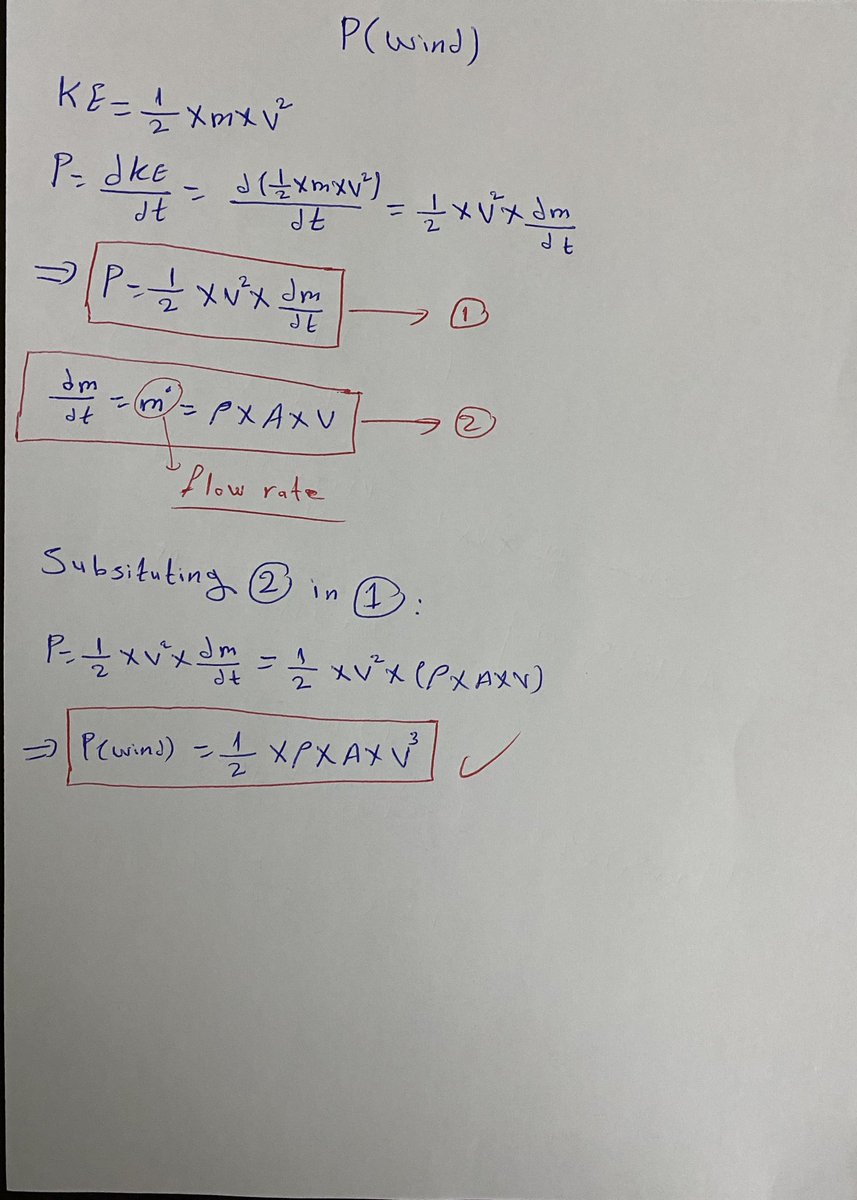 P(wind)
KE = 1/2 × m × v²
P = dKE/dt = d(1/2 × m × v²)/dt = 1/2 × v² × dm/dt
⇒ P = 1/2 × v² × dm/dt → ①
dm/dt = ṁ = ρ × A × v → ②
flow rate
Subsituting ② in ① :
P = 1/2 × v² × dm/dt = 1/2 × v² × (ρ × A × v)
⇒ P(wind) = 1/2 × ρ × A × v³ ✓